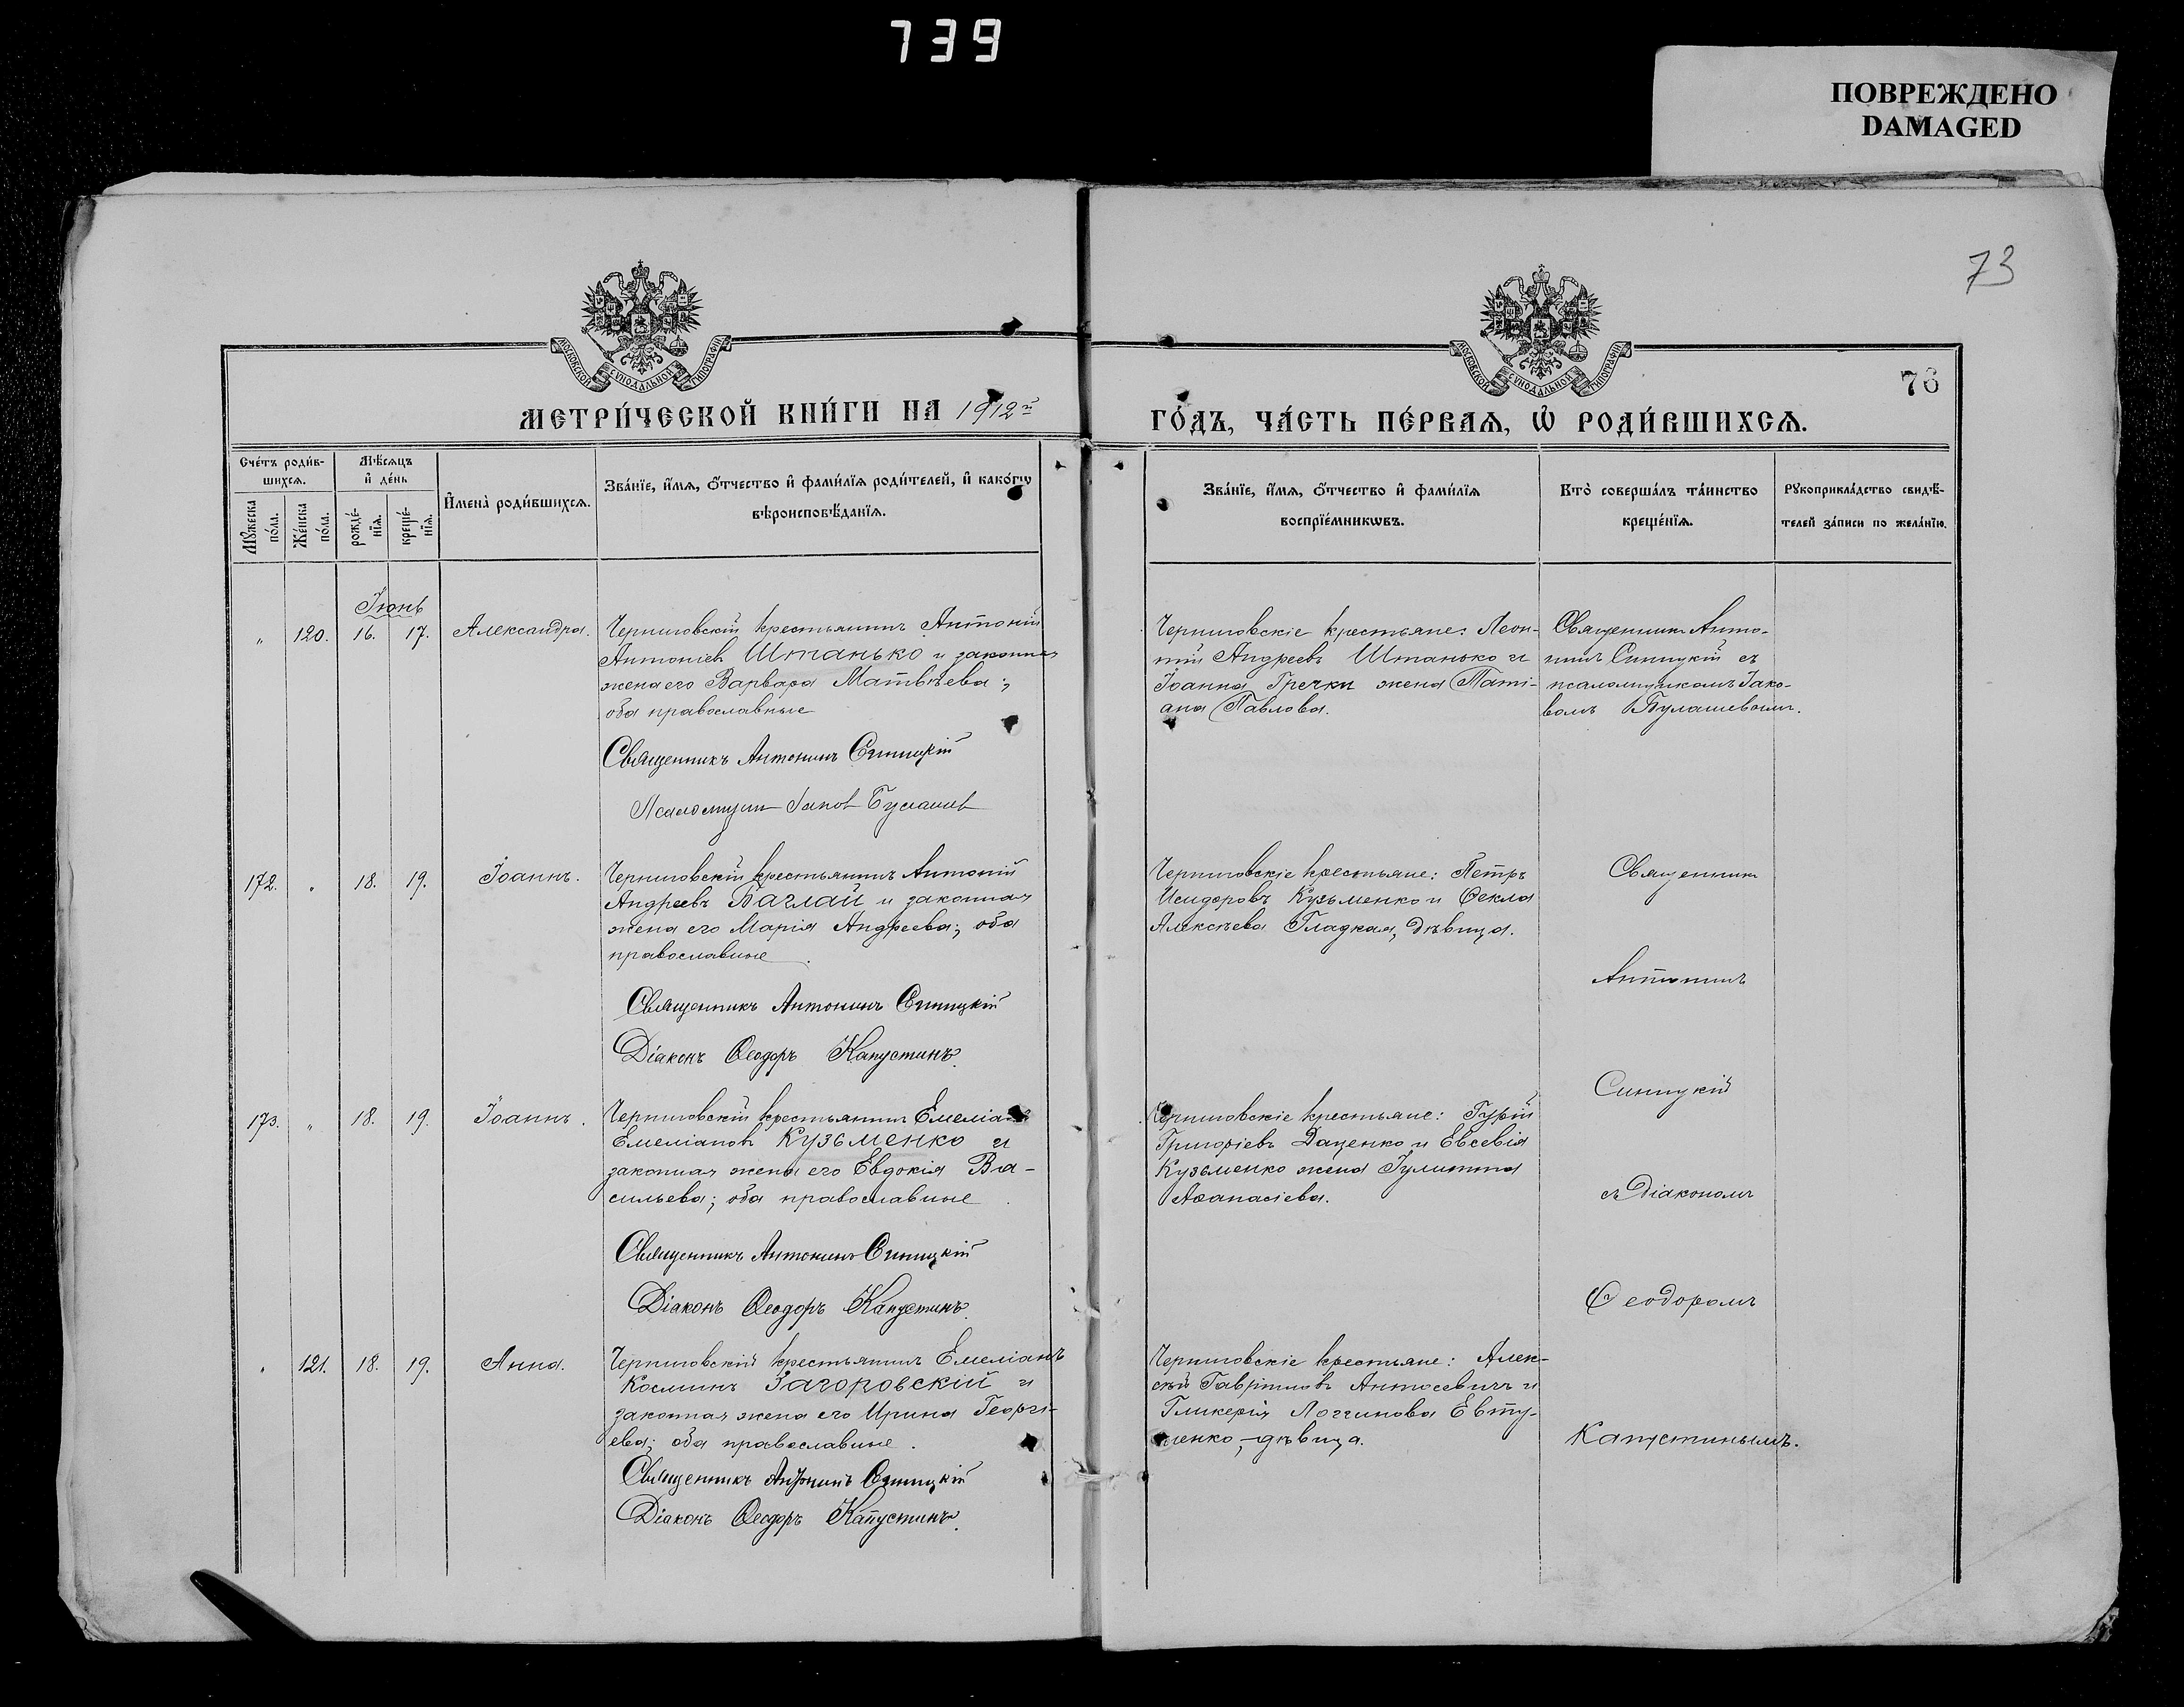 739
ПОВРЕЖДЕНО
DAMAGED
73
76
МОСКОВСКОЙ СѴНОДАЛЬНОЙ ТИПОГРАФІИ
МОСКОВСКОЙ СѴНОДАЛЬНОЙ ТИПОГРАФІИ
МЕТРИ́ЧЕСКОЙ КНИ́ГИ НА 1912й
ГО́ДЪ, ЧА́СТЬ ПЕ́РВАѦ, Ѽ РОДИ́ВШИХСѦ.
Сче́тъ роди́в-
шихсѧ.
Мꙋ́жеска по́ла.
Же́нска по́ла.
Мѣ́сѧцъ
и҆ де́нь
рожде́-нїѧ.
креще́-нїѧ.
И҆мена̀ роди́вшихсѧ.
Зва́нїе, и҆́мѧ, ѻ҆́тчество и҆ фами́лїѧ роди́телей, и҆ како́гѡ
вѣроисповѣ́данїѧ.
Зва́нїе, и҆́мѧ, ѻ҆́тчество и҆ фами́лїѧ
воспрїе́мникѡвъ.
Кто̀ соверша́лъ та́инство
креще́нїѧ.
Рꙋкоприкла́дство свидѣ́-
телей за́писи по жела́нїю.
Іюнь
" 120. 16. 17. Александра.
Черниговскій крестьянинъ Антоній
Антоніевъ Штанько и законная
жена его Варвара Матвѣева;
оба православные
Священникъ Антонинъ Синицкій
Псаломщик Іаков Булашев
Черниговскіе крестьяне: Леон-
тій Андреевъ Штанько и
Іоанна Гречки жена Таті-
ана Павлова.
Священникъ Анто-
нинъ Синицкій съ
псаломщикомъ Іако-
вомъ Булашевымъ.
172. " 18. 19. Іоаннъ.
Черниговскій крестьянинъ Антоній
Андреевъ Баглай и законная
жена его Марія Андреева; оба
православные.
Священникъ Антонинъ Синицкій
Діаконъ Ѳеодоръ Капустинъ.
Черниговскіе крестьяне: Петръ
Исидоровъ Кузьменко и Ѳекла
Алексѣева Гладкая, дѣвица.
173. " 18. 19. Іоаннъ.
Черниговскій крестьянинъ Емеліанъ
Емеліановъ Кузьменко и
законная жена его Евдокія Ва-
сильева; оба православные.
Священникъ Антонинъ Синицкій
Діаконъ Ѳеодоръ Капустинъ.
Черниговскіе крестьяне: Гурій
Григоріевъ Даценко и Евсевія
Кузьменко жена Іулитта
Аѳанасіева.
" 121. 18. 19. Анна.
Черниговскій крестьянинъ Емеліанъ
Косминъ Загоровскій и
законная жена его Ирина Георгі-
ева; оба православные.
Священникъ Антонинъ Синицкій
Діаконъ Ѳеодоръ Капустинъ.
Черниговскіе крестьяне: Алек-
сѣй Гавріиловъ Антосевичъ и
Гликерія Логгинова Евту-
шенко, дѣвица.
Священникъ
Антонинъ
Синицкій
съ Діакономъ
Ѳеодоромъ
Капустинымъ.